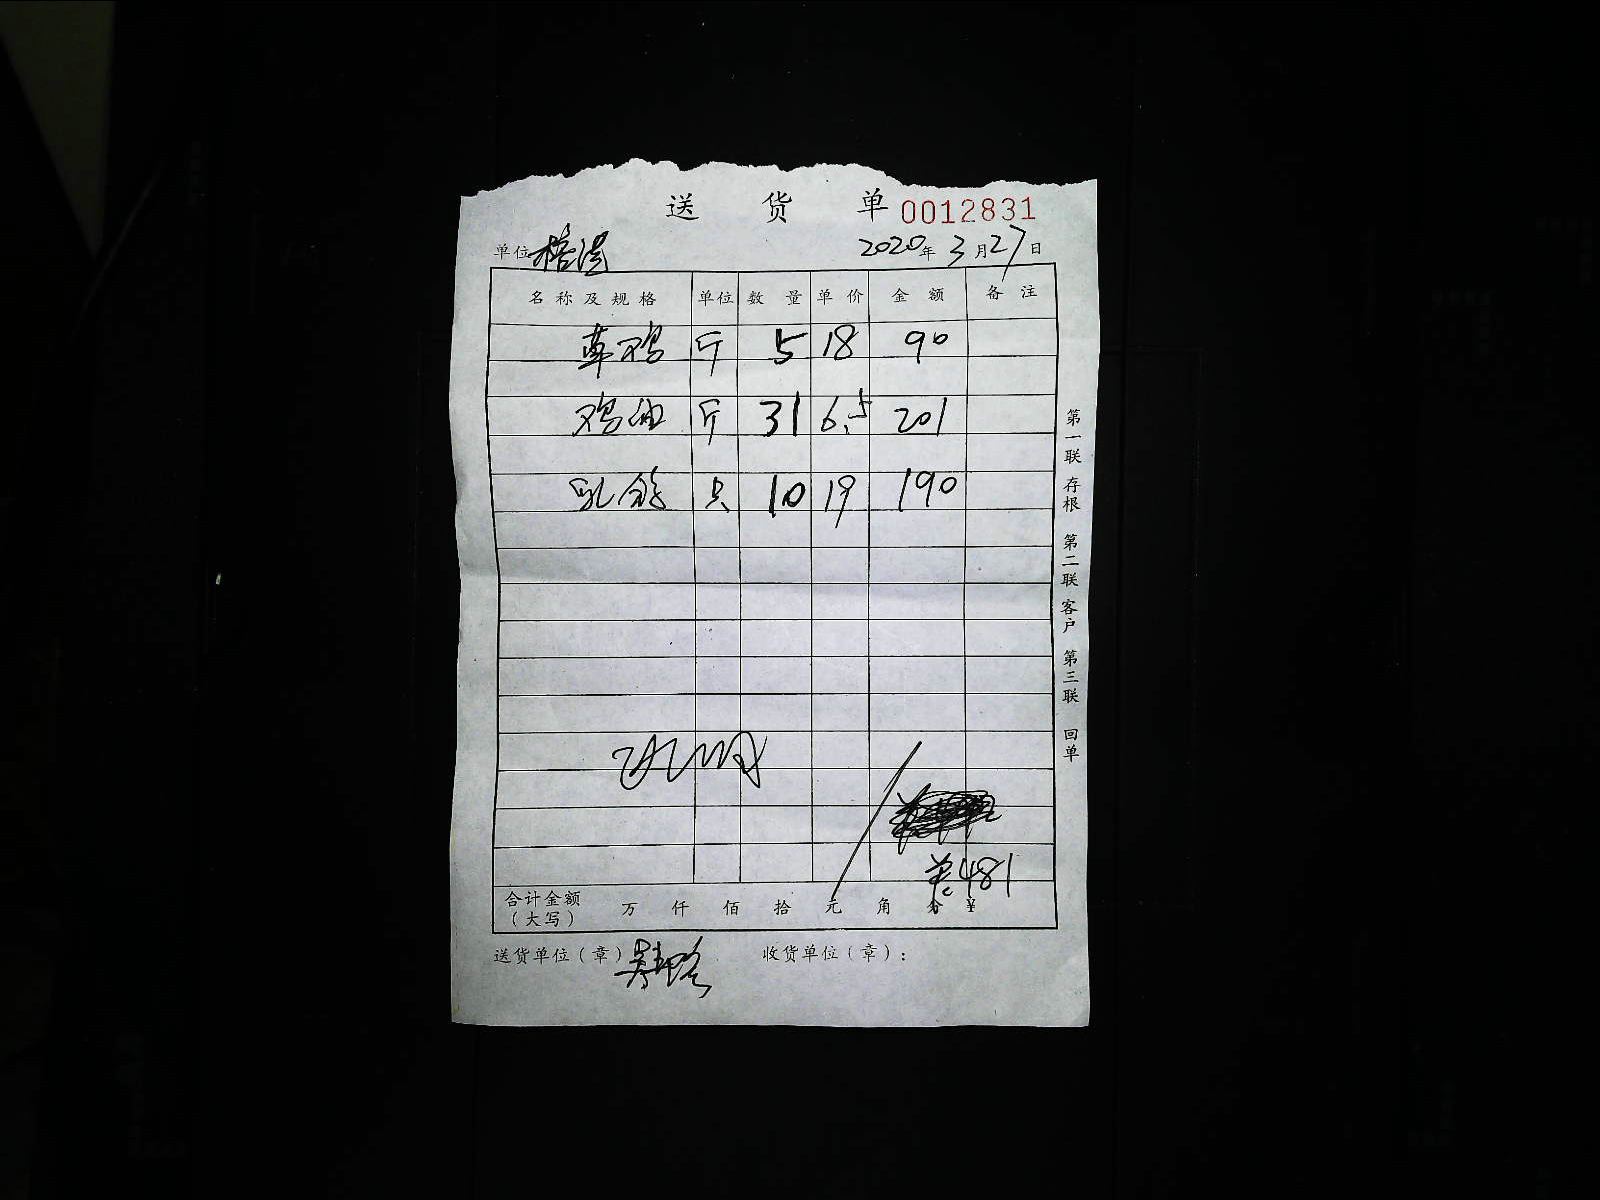 送 货 单 0012831
单位 榕港 2020年3月27日
名称及规格 单位 数量 单价 金额 备注
草鸡 斤 5 18 90
鸡油 斤 31 6.5 201
乳鸽 只 10 19 190
共:481
合计金额（大写） 万 仟 佰 拾 元 角 分 ¥
送货单位（章） 收货单位（章）：
第一联 存根 第二联 客户 第三联 回单